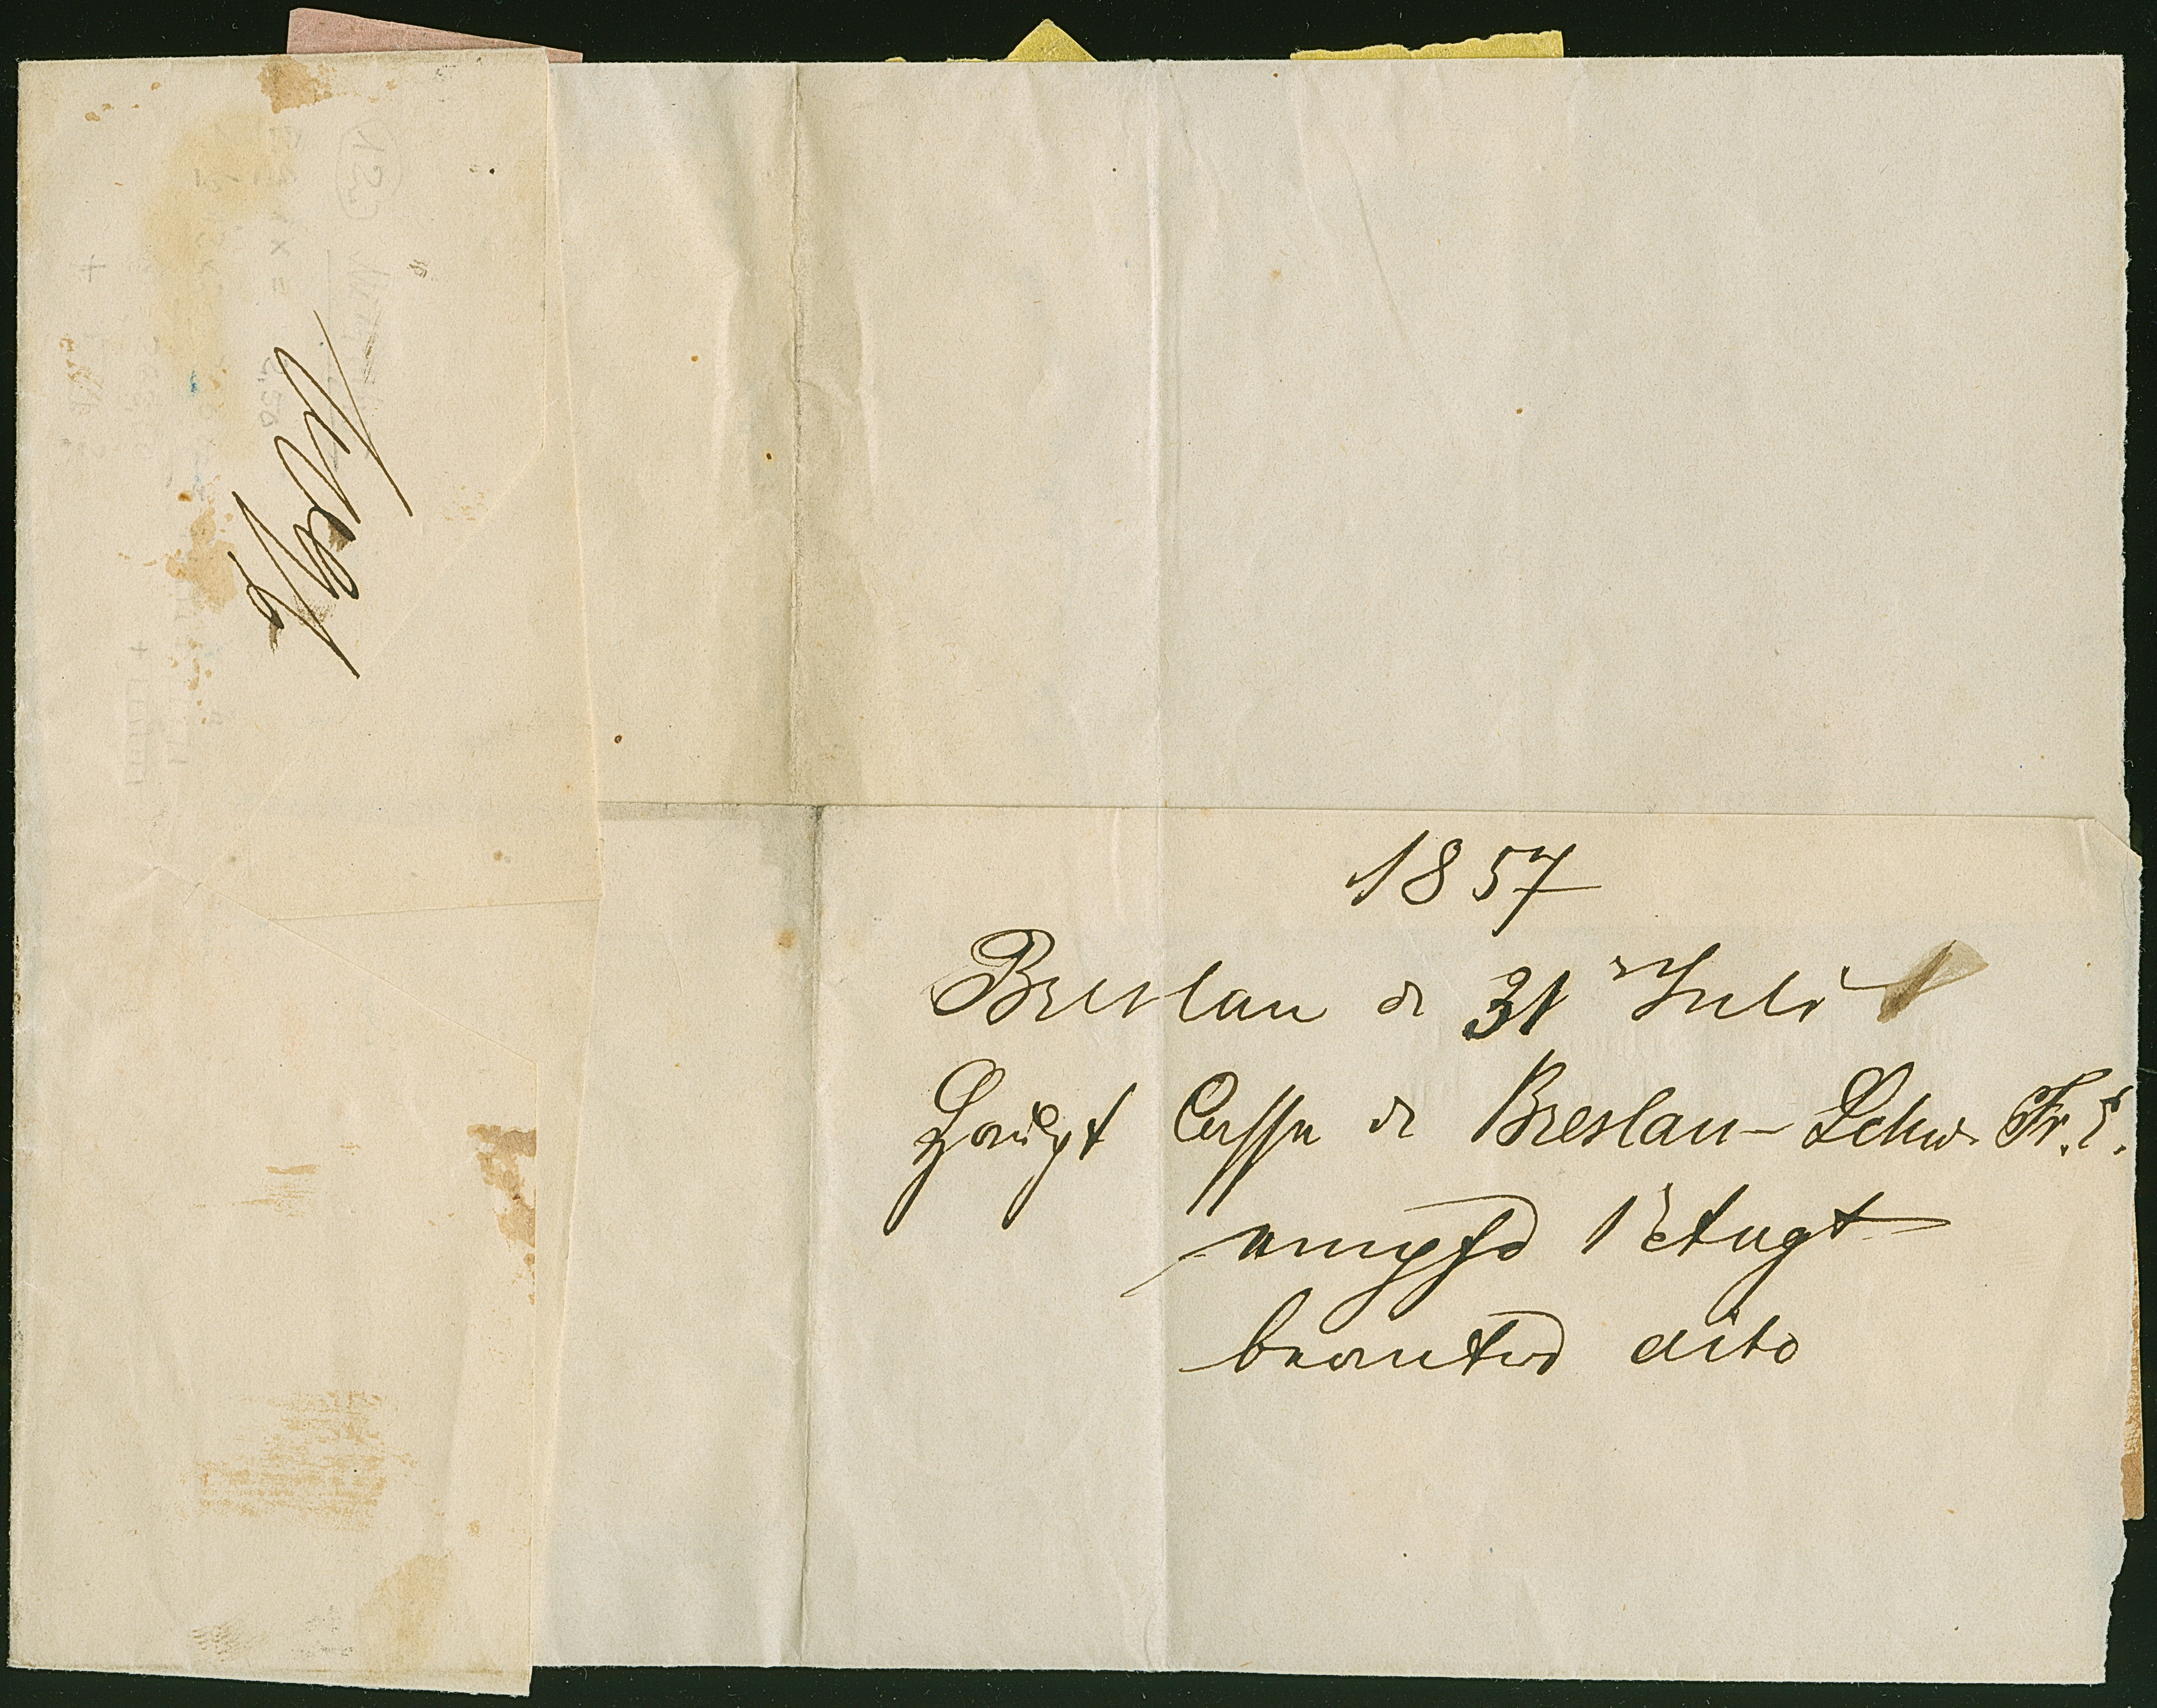 1857
Breslau d 31 Juli
Haupt Casse d Breslau-Schw. Fr. E.
empfd 1 Augt
beantwd dito